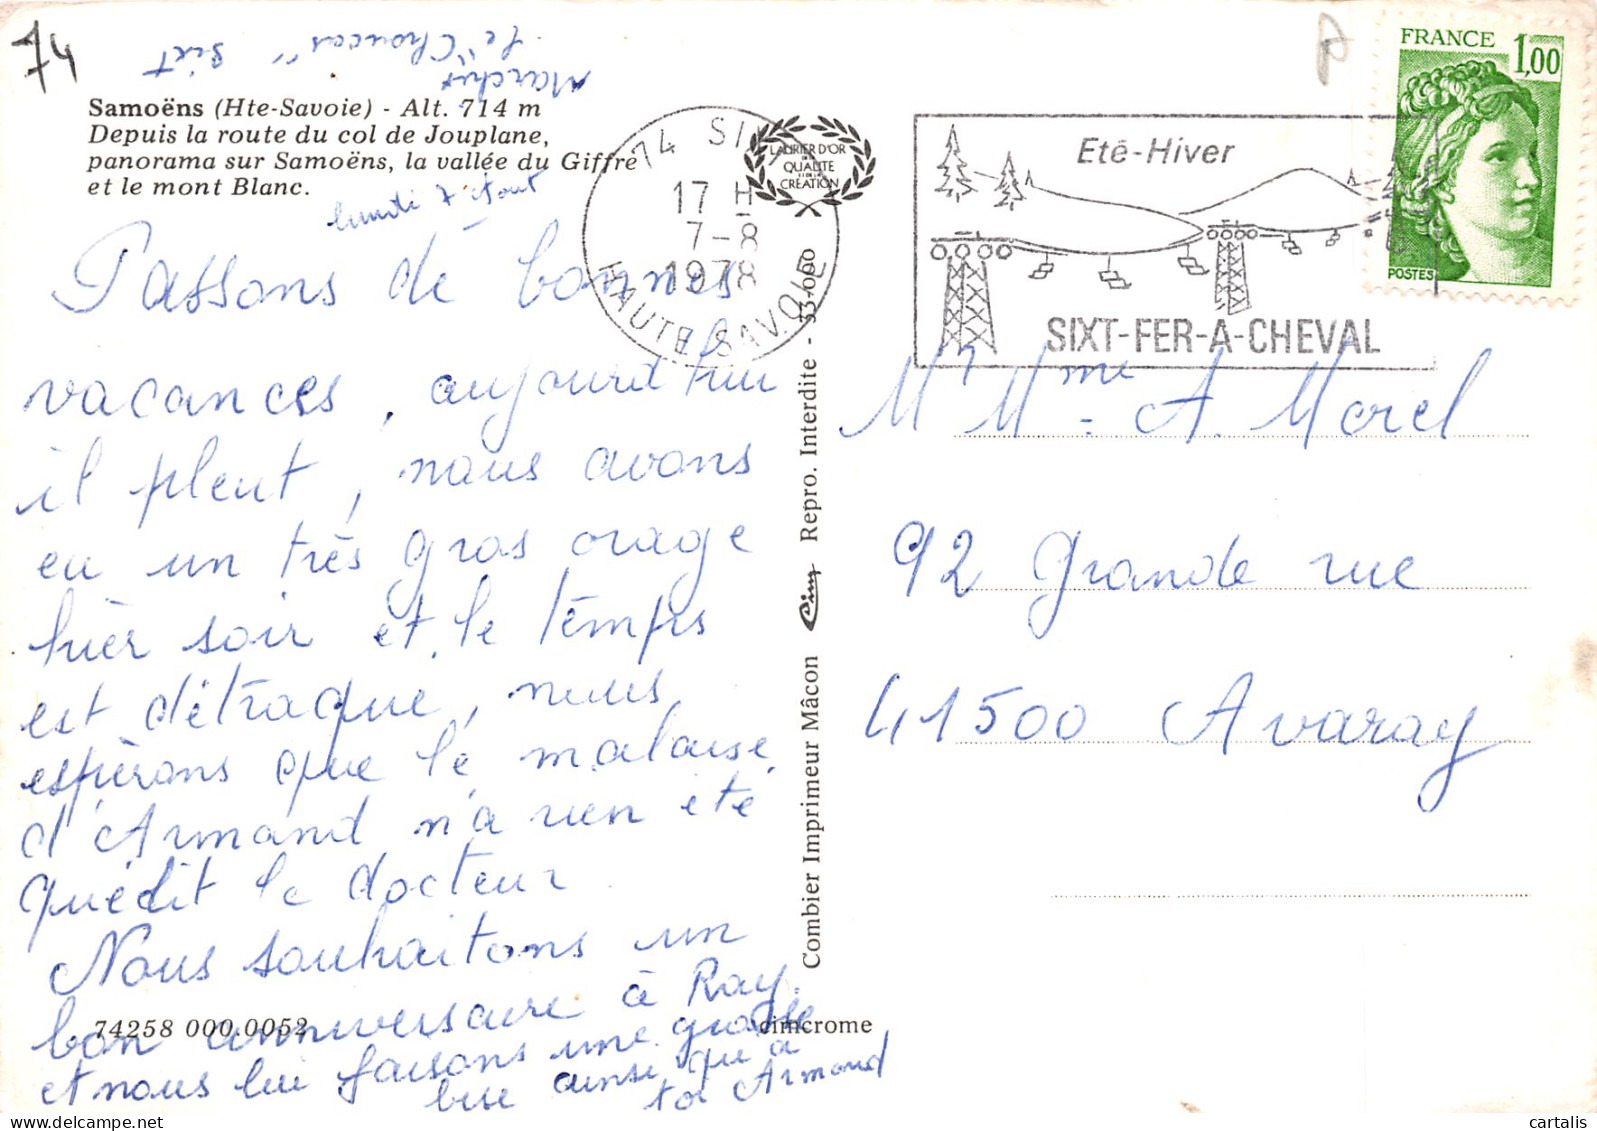 74
Marchet
Le "Choucas" Sixt
Samoëns (Hte-Savoie) - Alt. 714 m
Depuis la route du col de Jouplane,
panorama sur Samoëns, la vallée du Giffre
et le mont Blanc.
lundi 7 Août
Passons de bonnes
vacances, aujourd'hui
il pleut, nous avons
eu un très gros orage
hier soir et le temps
est détraqué, nous
espérons que le malaise
d'Armand n'a rien été
qu'edit le docteur
Nous souhaitons un
bon anniversaire à Ray.
et nous lui faisons une grosse
bise ainsi qu'a
toi Armand
74258 000.0052
cimcrome
74 SIXT
17 H
7-8
1978
HAUTE SAVOIE
LAURIER D'OR
DE LA
QUALITE
ET DE LA
CREATION
Combier Imprimeur Mâcon Cim Repro. Interdite - 33-000
Eté-Hiver
SIXT-FER-A-CHEVAL
FRANCE 1,00
POSTES
Mr Mme A. Morel
92 Grande rue
41500 Avaray
cartalis
www.delcampe.net